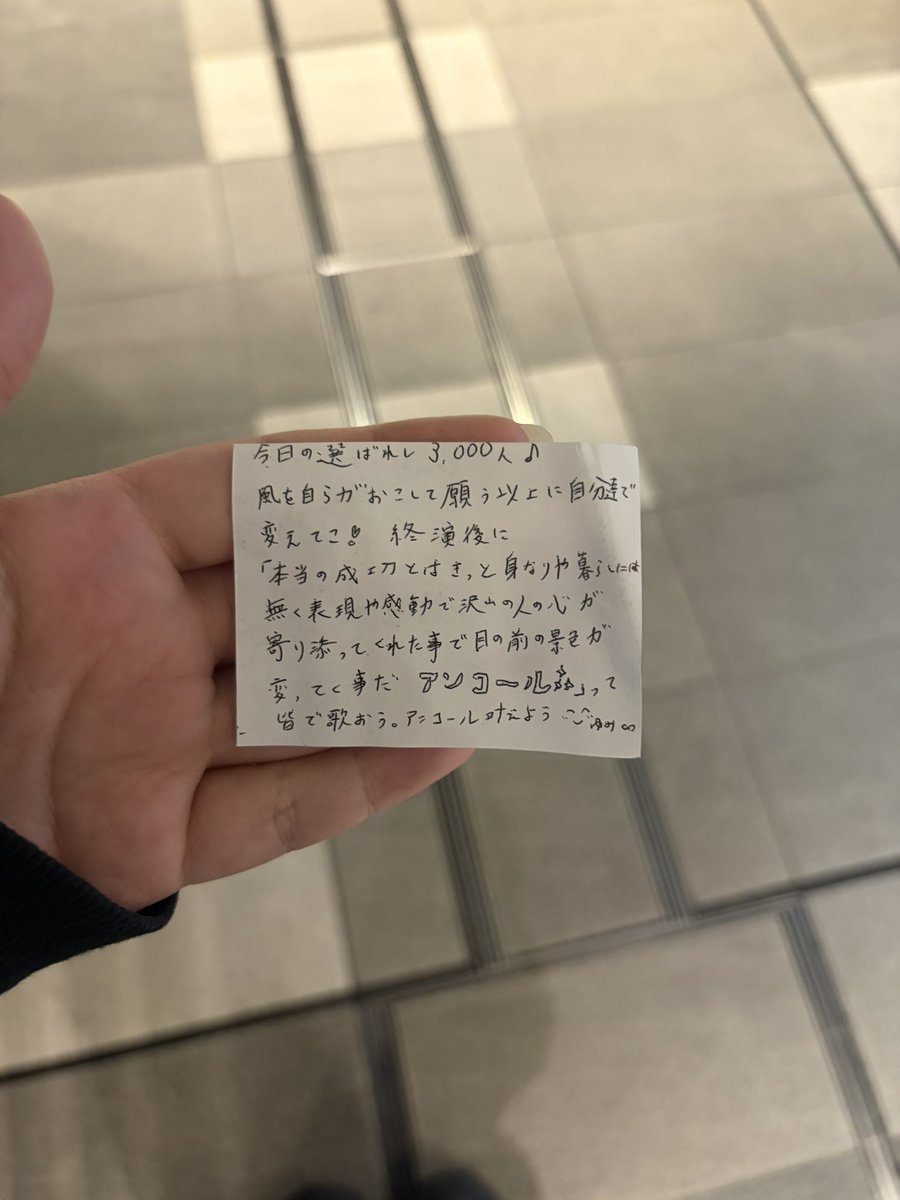 今日の選ばれし 3,000人♪
風を自らがおこして願う以上に自分達で
変えてこ! 終演後に
「本当の成功とはきっと身なりや暮らしには
無く表現や感動で沢山の人の心が
寄り添ってくれた事で目の前の景色が
変ってく事だ アンコール」って
皆で歌おう。アンコール叶えよう